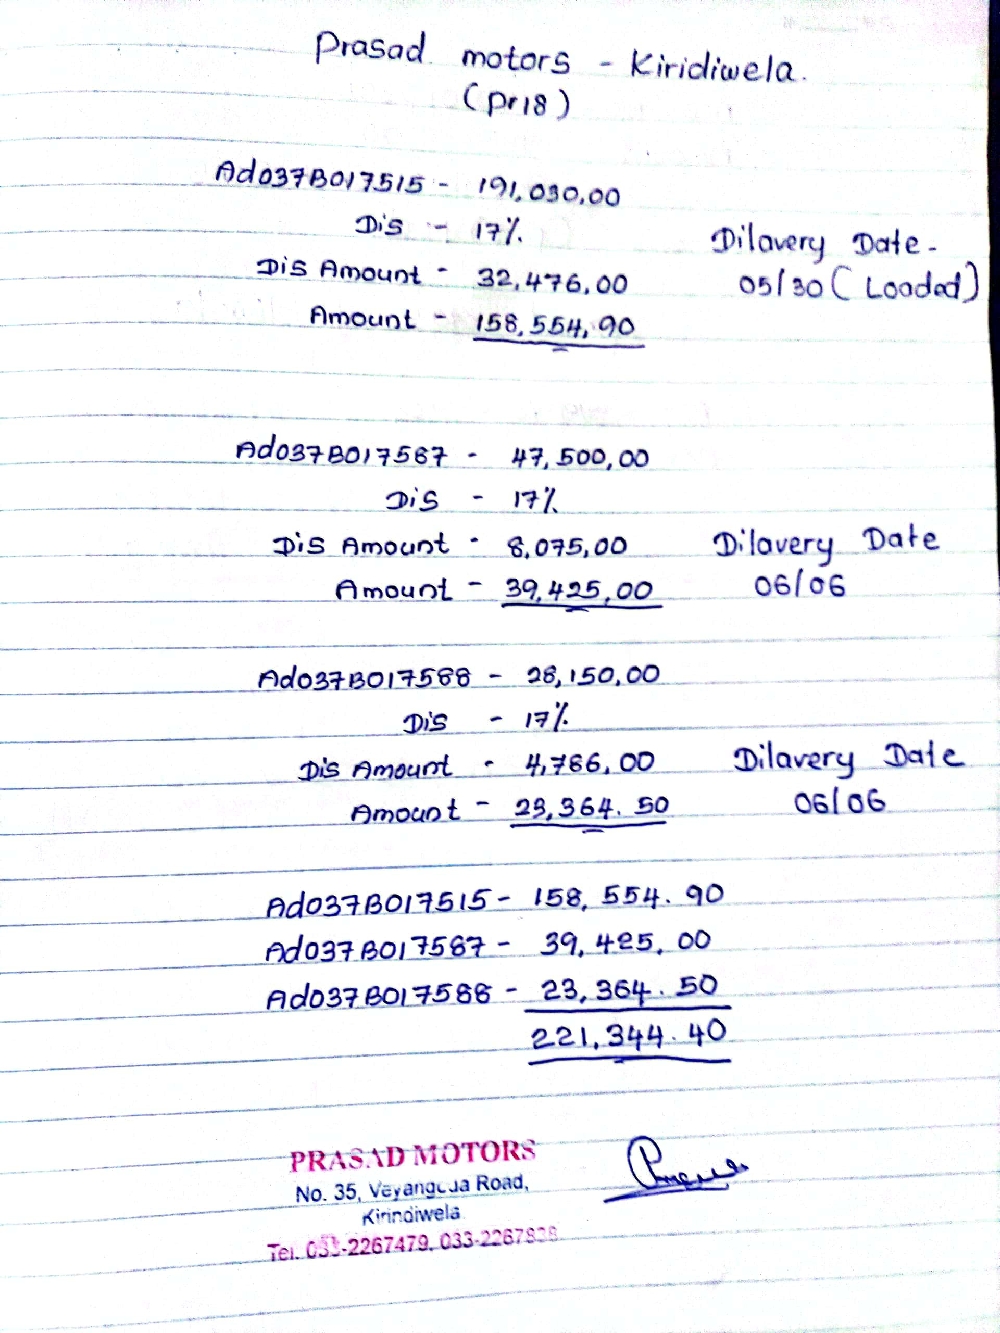 Prasad motors - Kiridiwela.
(Pr18)
Ad037B017515 - 191,030.00
Dis - 17%
Dilavery Date -
Dis Amount - 32,476.00
05/30 (Loaded)
Amount - 158,554.90
Ad037B017587 - 47,500.00
Dis - 17%
Dis Amount - 8,075.00
Dilavery Date
Amount - 39,425.00
06/06
Ad037B017588 - 28,150.00
Dis - 17%
Dis Amount - 4,786.00
Dilavery Date
Amount - 23,364.50
06/06
Ad037B017515 - 158,554.90
Ad037B017587 - 39,425.00
Ad037B017588 - 23,364.50
221,344.40
PRASAD MOTORS
No. 35, Veyangoda Road,
Kirindiwela
Tel. 033-2267479, 033-